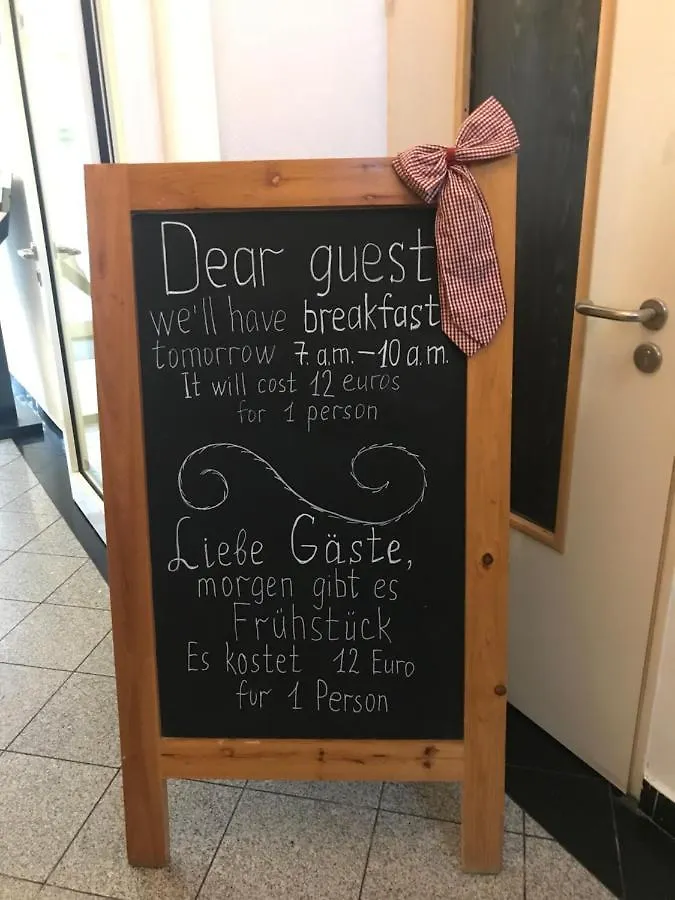 Dear guest
we'll have breakfast
tomorrow 7. a.m. – 10 a.m.
It will cost 12 euros
for 1 person
Liebe Gäste,
morgen gibt es
Frühstück
Es kostet 12 Euro
fur 1 Person